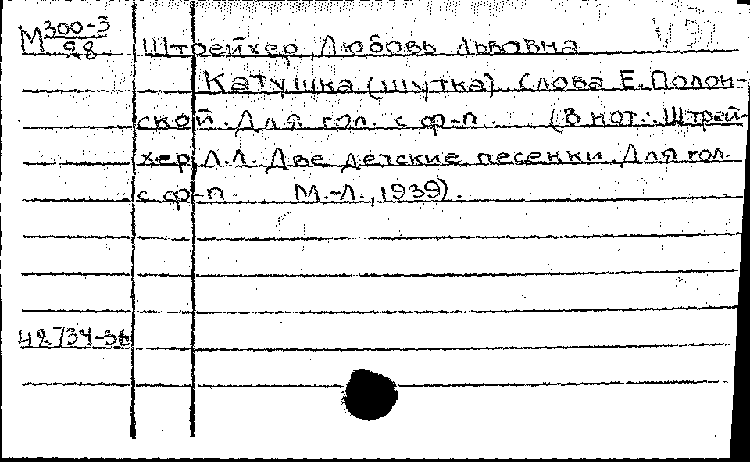 М 300-3
28
Штрейхер Любовь Львовна
Катушка (шутка). Слова Е. Полон-
ской. Для гол. с ф-п. (В нот.: Штрей-
хер Л.Л. Две детские песенки. Для гол.
с ф-п. М.-Л., 1939).
42734-56